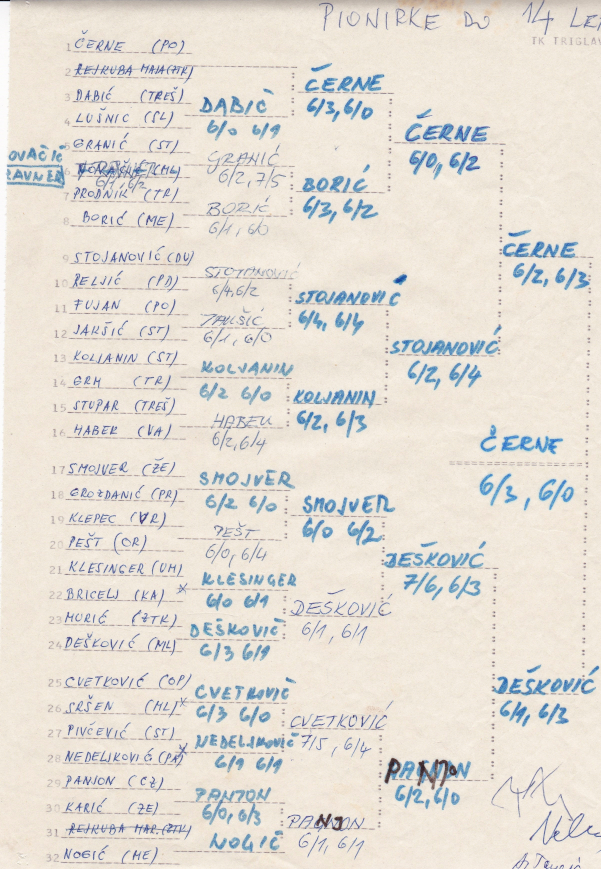 PIONIRKE DO 14 LET
TK TRIGLAV
1 ČERNE (PO)
2 REJKUBA MAJA (ZTK)
3 DABIĆ (TREŠ)
4 LUŠNIC (SL)
5 GRANIĆ (ST)
6 (ML)
7 PRODNIK (TR)
8 BORIĆ (ME)
9 STOJANOVIĆ (DU)
10 RELJIĆ (PD)
11 FUJAN (PO)
12 JAKŠIĆ (ST)
13 KOLJANIN (ST)
14 GRM (TR)
15 STUPAR (TREŠ)
16 HABER (VA)
17 SMOJVER (ŽE)
18 GROZDANIĆ (PR)
19 KLEPEC (VR)
20 PEŠT (OR)
21 KLESINGER (UM)
22 BRICELJ (KA) X
23 MURIĆ (ZTK)
24 DEŠKOVIĆ (ML)
25 CVETKOVIĆ (OP)
26 SRŠEN (ML) X
27 PIVČEVIĆ (ST)
28 NEDELJKOVIĆ (PA) X
29 PANJON (CZ)
30 KARIĆ (ZE)
31 REJKUBA MAR. (ZTK)
32 NOGIĆ (ME)
OVAČIĆ
RAVNER
6/1, 6/2
DABIČ
6/0 6/1
GRANIĆ
6/2, 7/5
BORIĆ
6/1, 6/0
STOJANOVIĆ
6/4, 6/2
6/1, 6/0
KOLJANIN
6/2 6/0
HABER
6/2, 6/4
SMOJVER
6/2 6/0
PEŠT
6/0, 6/4
KLESINGER
6/0 6/1
DEŠKOVIČ
6/3 6/1
CVETKOVIČ
6/3 6/0
NEDELJKOVIČ
6/1 6/1
PANTON
6/0, 6/3
NOGIČ
ČERNE
6/3, 6/0
BORIĆ
6/3, 6/2
STOJANOVIĆ
6/4, 6/4
KOLJANIN
6/2, 6/3
SMOJVER
6/0 6/2
DEŠKOVIĆ
6/1, 6/1
CVETKOVIĆ
7/5, 6/4
PANJON
6/1, 6/1
ČERNE
6/0, 6/2
STOJANOVIĆ
6/2, 6/4
DEŠKOVIĆ
7/6, 6/3
PANJON
6/2, 6/0
ČERNE
6/2, 6/3
DEŠKOVIĆ
6/1, 6/3
ČERNE
6/3, 6/0